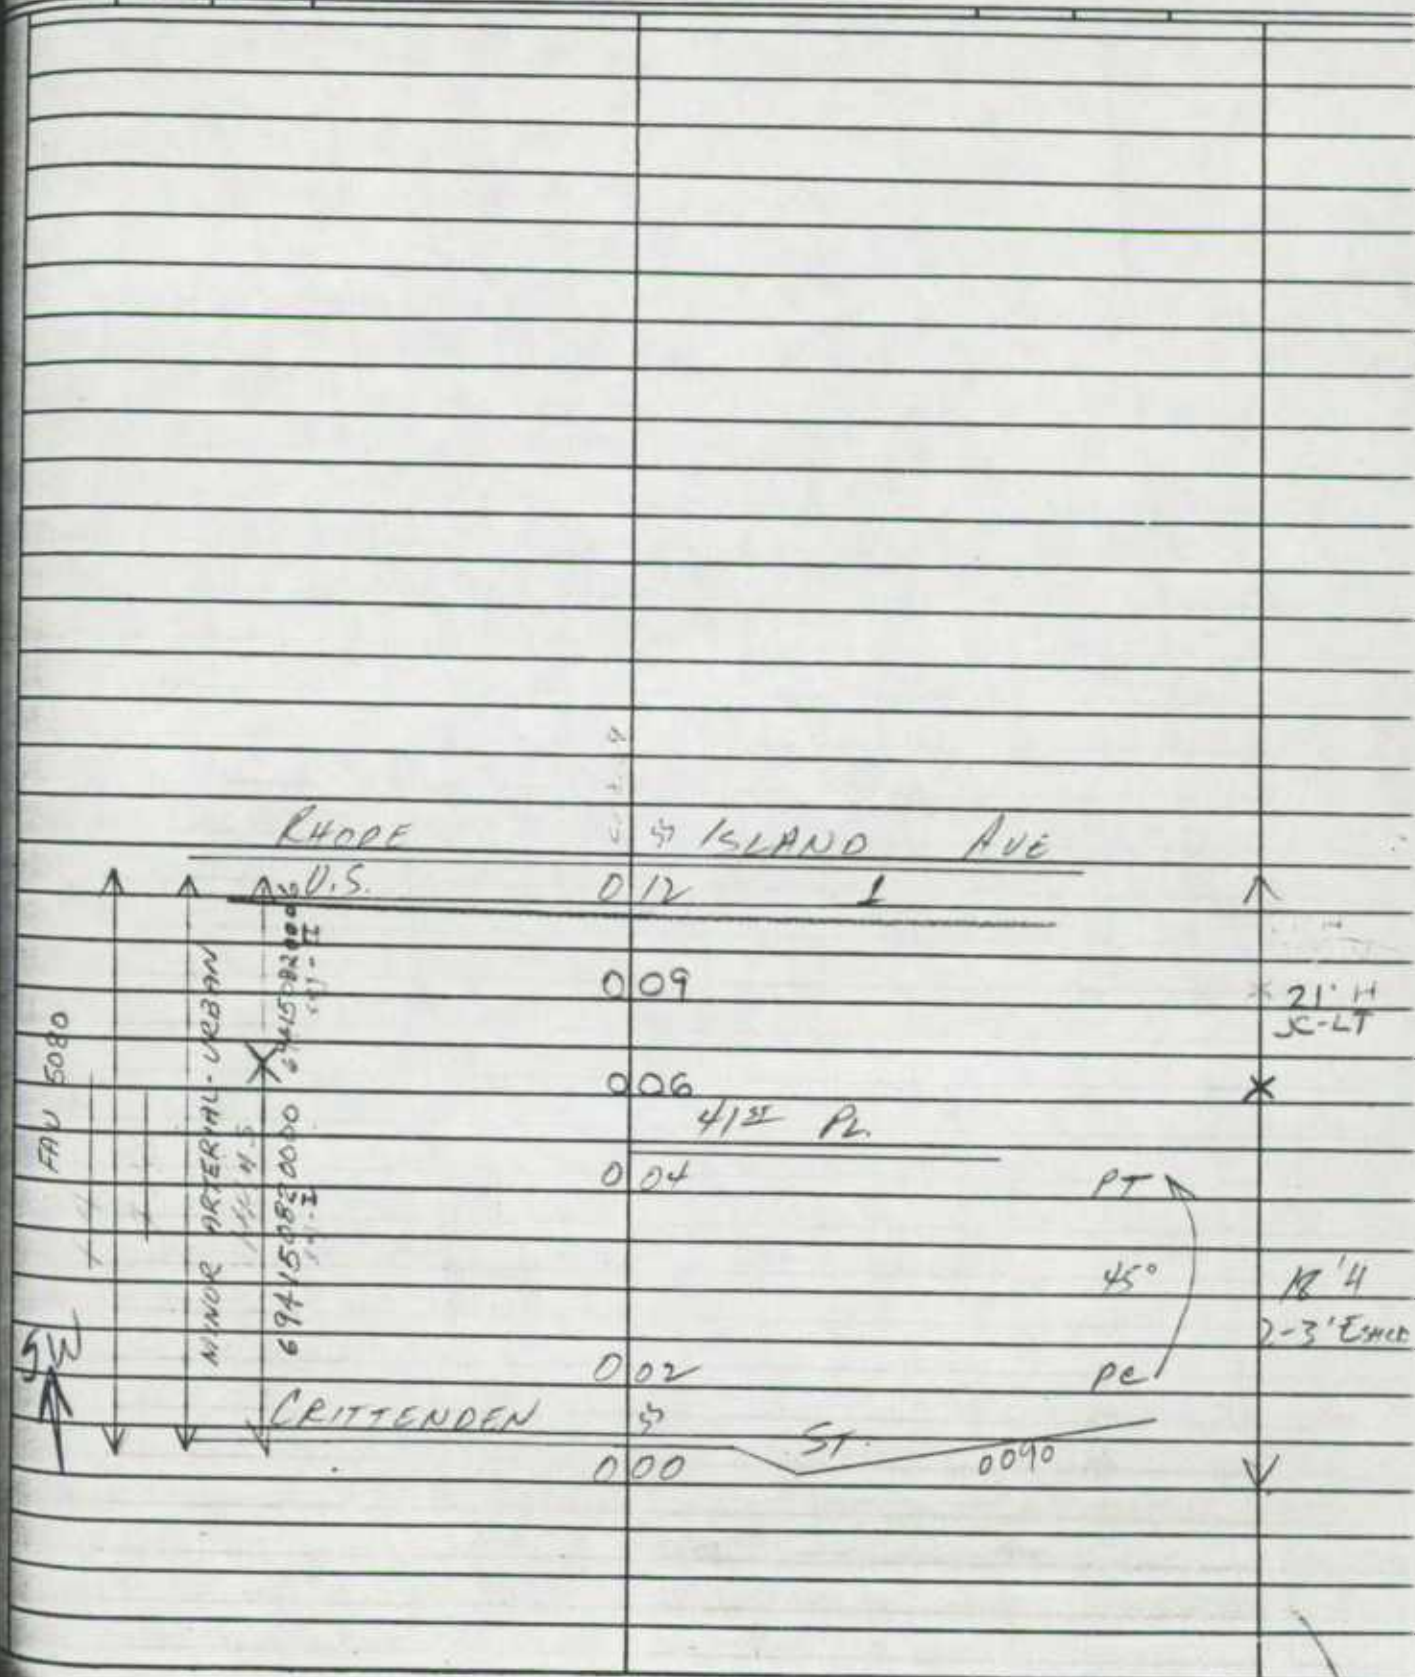 RHODE ISLAND AVE
U.S. 0 12 1
0 09
21' H
JC-LT
0 06
41ST PL.
0 04
PT
45°
18' H
2-3'
0 02
PC
CRITTENDEN ST.
0090
0 00
FAU 5080
MINOR ARTERIAL-URBAN
694150820000
SW